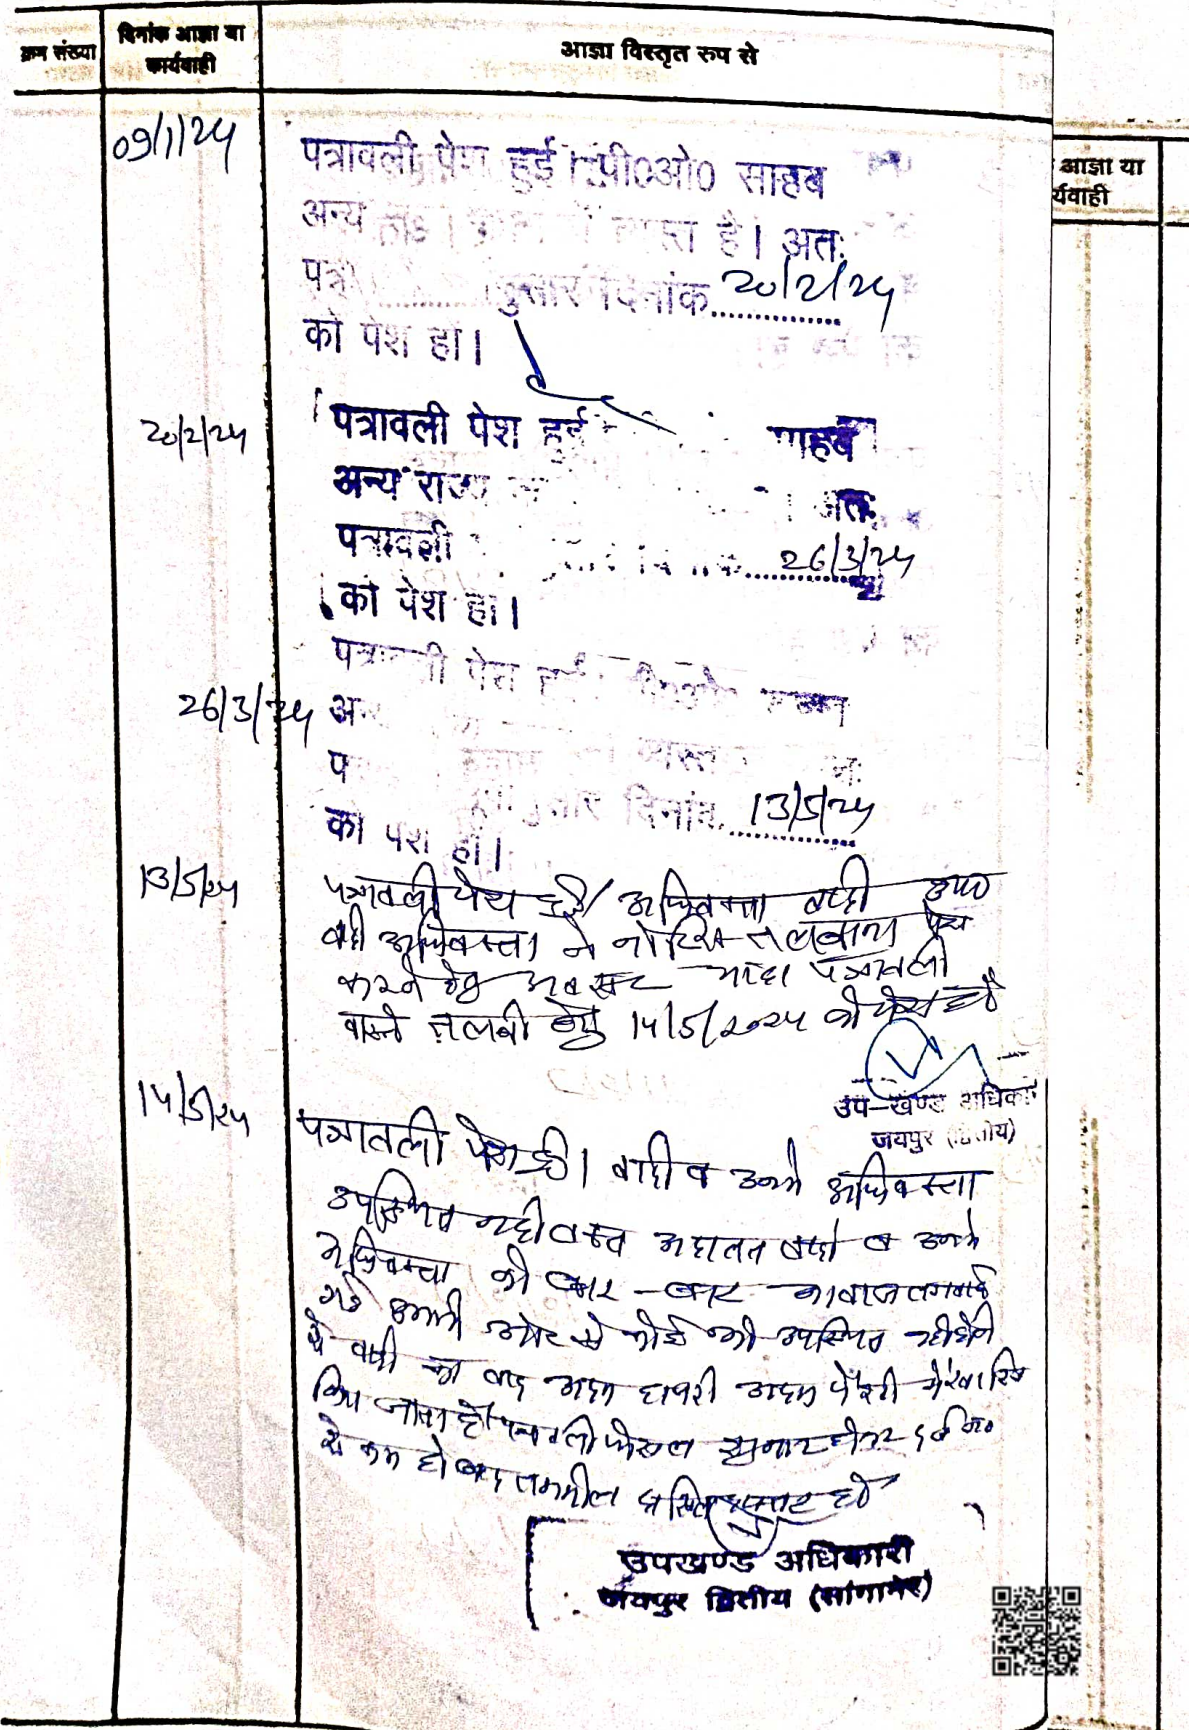 क्रम संख्या
दिनांक आज्ञा या
कार्यवाही
आज्ञा विस्तृत रुप से
आज्ञा या
र्यवाही
09/1/24
पत्रावली पेश हुई। पी0ओ0 साहब
अन्य व्यस्त है। अतः
दिनांक 20/2/24
को पेश हो।
20/2/24
पत्रावली पेश हुई साहब
अन्य राज्य अतः
पत्रावली 26/3/24
को पेश हो।
26/3/24
पत्रावली पेश हुई
व्यस्त
दिनांक 13/5/24
को पेश हो।
13/5/24
पत्रावली पेश हुई। अधिवक्ता वादी उप0
वादी अधिवक्ता ने नोटिस तलबाना पेश
करने हेतु अवसर चाहा पत्रावली
वास्ते तलबी हेतु 14/5/2024 को पेश हो
उप-खण्ड अधिकारी
जयपुर (द्वितीय)
14/5/24
पत्रावली पेश हुई। वादी व उनके अधिवक्ता
उपस्थित नही वक्त अदालत वादी व उनके
अधिवक्ता को बार-बार आवाज लगवाई
गई उनकी ओर से कोई भी उपस्थित नही होने
से वादी का वाद अदम हाजरी अदम पैरवी में खारिज
किया जाता है। पत्रावली फैसल शुमार होकर दर्ज नं0
से कम हो बाद तकमील दाखिल दफ्तर हो
उपखण्ड अधिकारी
जयपुर द्वितीय (सांगानेर)